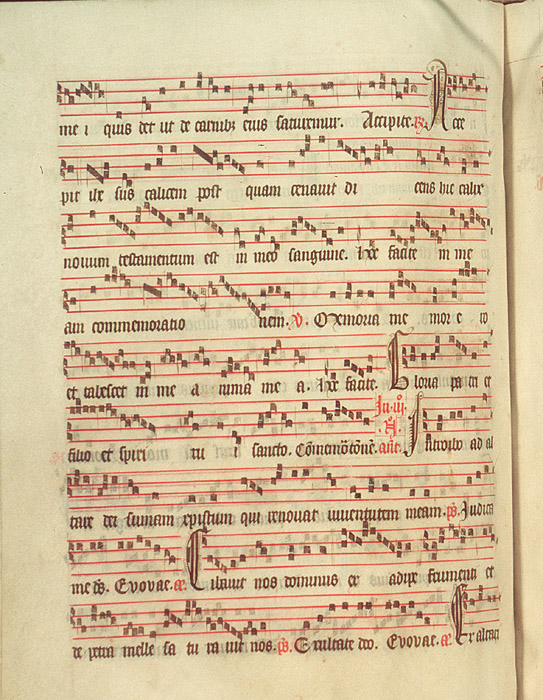 me i quis det ut de carnibz eius saturemur. Accipite. R. Acce
pit ihc sus calicem post quam cenauit di cens hic calix
nouum testamentum est in meo sanguine. Hec facite in me
am commemoratio nem. V. Memoria me mor e ro
et tabescet in me a nima me a. Hec facite. Gloria pa tri et
filio et spiri tu i sancto. Commemorationem.
In iij. N. an. Introibo ad al
tare dei sumam xpistum qui renouat iuuentutem meam. ps. Iudica
me ds. Evovae. a. Cibauit nos dominus ex adipe frumenti et
de petra melle sa tu ra uit nos. ps. Exultate deo. Evovae. a. Ex altari